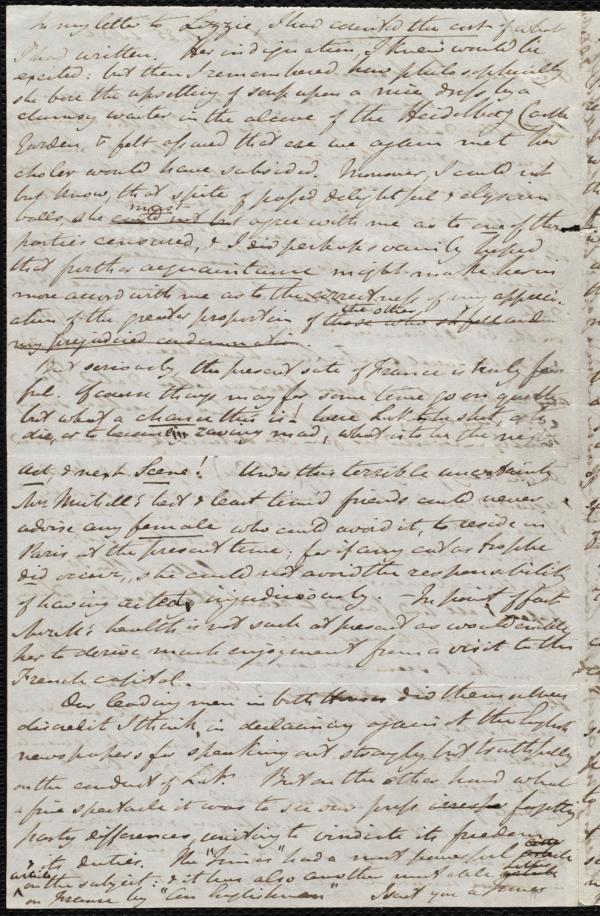 In my letter to Lizzie, I had counted the cost of what
I had written. Her indignation, I knew would be
excited: but then I remembered how philosophically
she bore the upsetting of soup upon a nice dress by a
clumsy waiter in the alcove of the Heidelberg Castle
Garden, & felt assured that ere we again met her
choler would have subsided. Moreover, I could not
but know, that spite of passed delightful & elysian
balls, she must could not but agree with me as to one of the
parties censured, & I did perhaps vainly hope
that further acquaintance might make her in
more accord with me as to the correctness of my appreci-
ation of the greater proportion of the other
my prejudiced condemnation.
But seriously the present state of France is truly fear
ful. Of course things may for some time go on quietly
but what a chance this is! were L.N. to be shot, or to
die, or to become raving mad, what is to be the next
act, & next Scene! Under this terrible uncertainty
Mrs Mitchell's best & least timid friends could never
advise any female who could avoid it, to reside in
Paris at the present time; for if any catastrophe
did occur, she could not avoid the responsibility
of having acted injudiciously. — In point of fact
health is not such at present as would enable
her to derive much enjoyment from a visit to the
French capital.
Our leading men in both Houses did themselves
discredit I think in declaiming against the English
newspapers for speaking out strongly but truthfully
on the conduct of L.N. But on the other hand what
a fine spectacle it was to see our press forgetting
party differences, uniting to vindicate its freedom
& its duties. The "Times" had a most powerful article
on the subject: & it has also another most able
on France by "An Englishman" Isn't you a Times